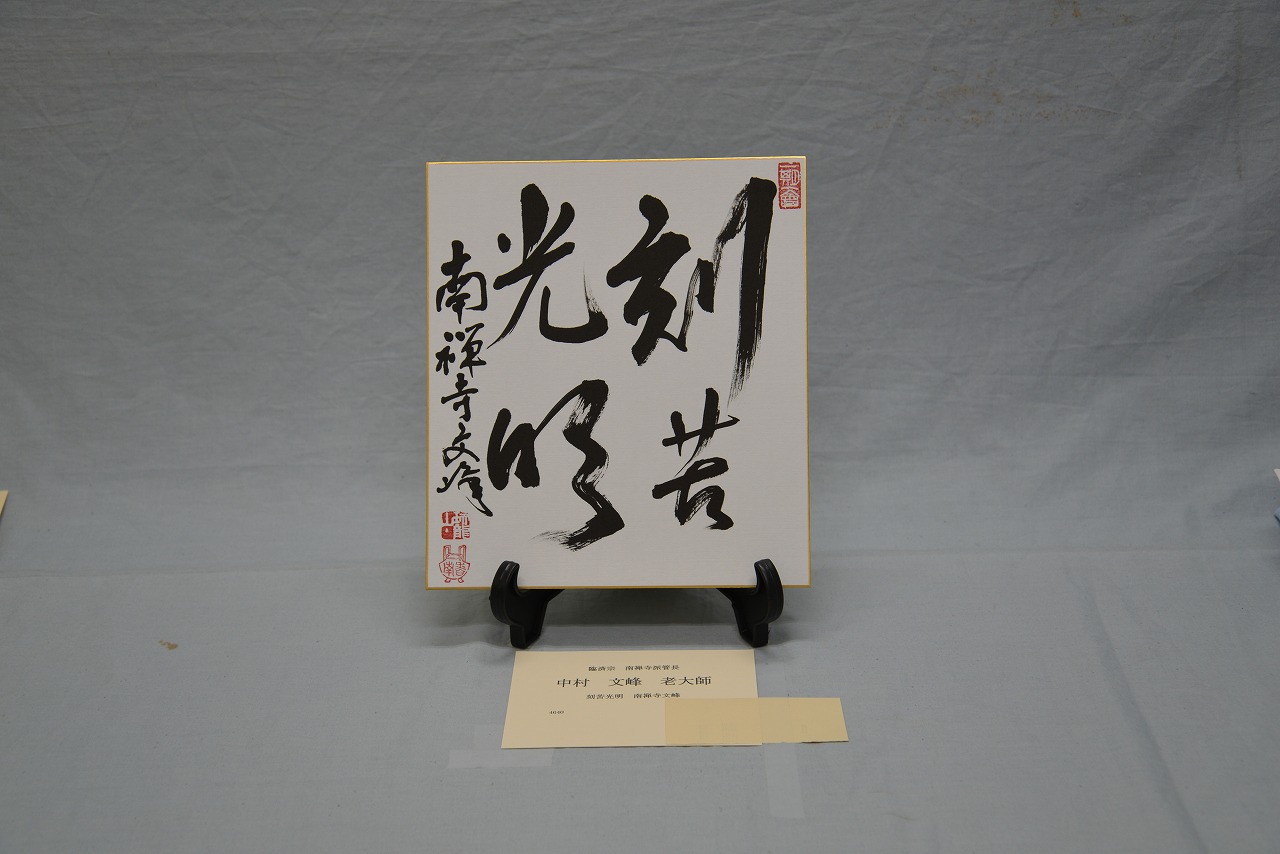 刻苦
光明
南禅寺文峰
臨済宗　南禅寺派管長
中村　文峰　老大師
刻苦光明　南禅寺文峰